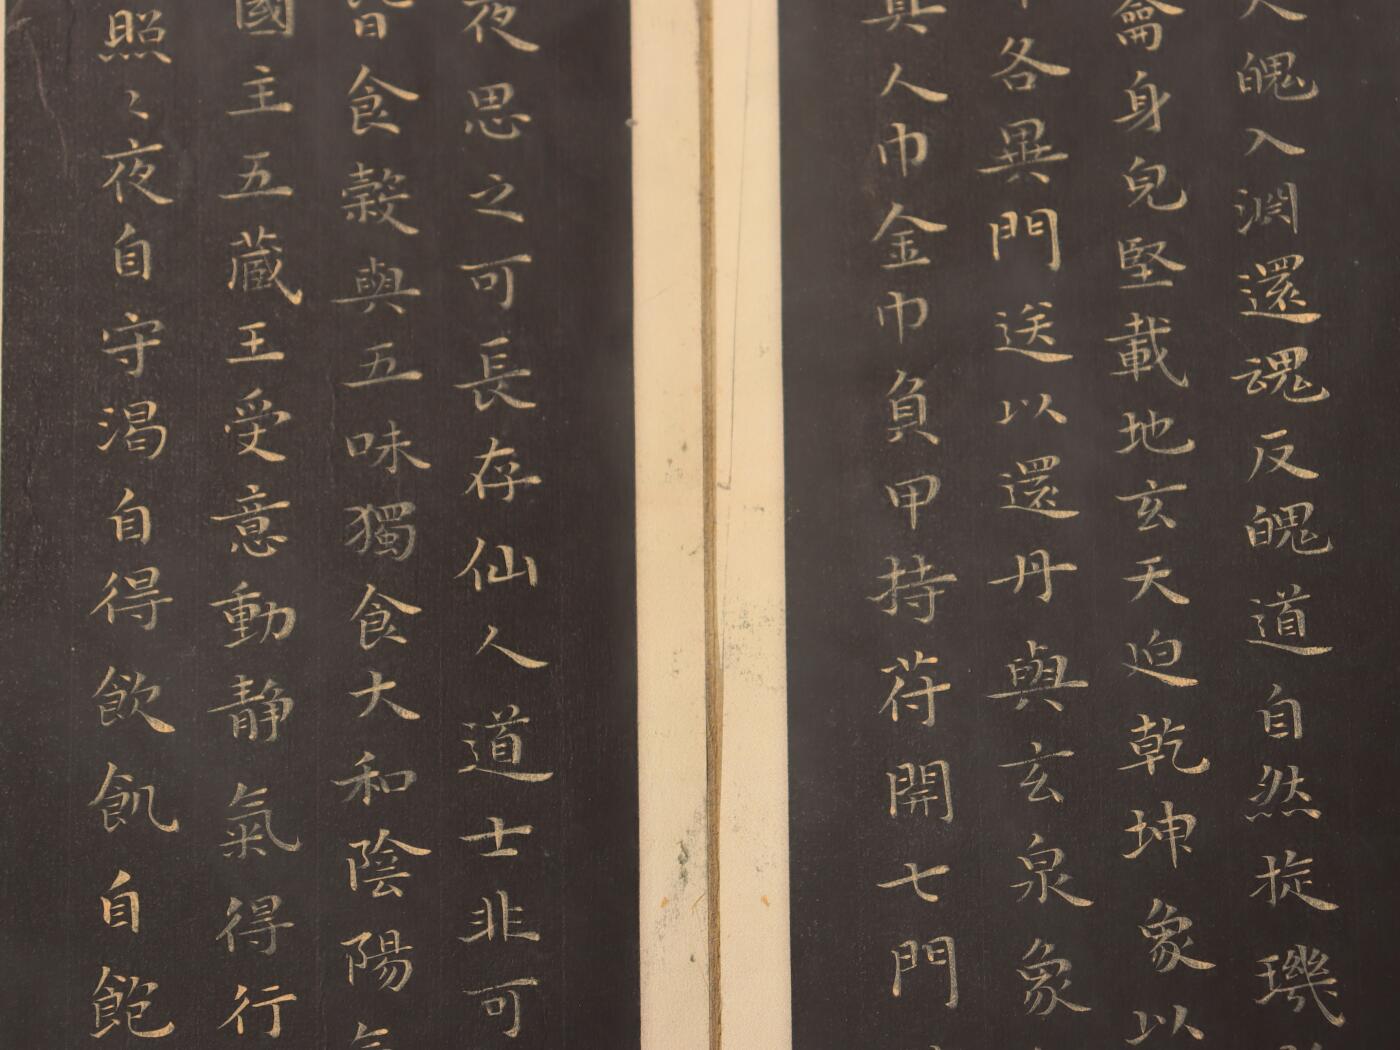 魄入淵還魂反魄道自然㨓璣
龠身皃堅載地玄天迫乾坤象以
各異門送以還丹與玄泉象
真人巾金巾負甲持苻開七門
夜思之可長存仙人道士非可
皆食穀與五味獨食大和陰陽氣
國主五藏王受意動静氣得行
照〻夜自守渴自得飲飢自飽